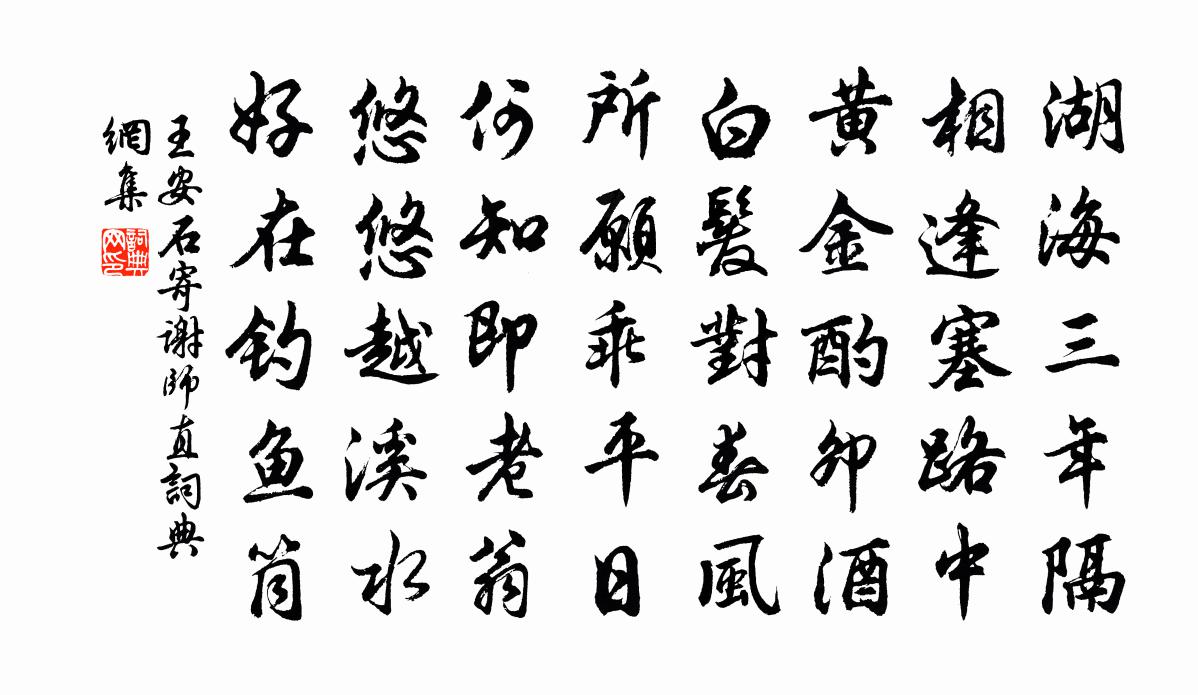 湖海三年隔
相逢塞路中
黄金酌卯酒
白髮對春風
所願乖平日
何知即老翁
悠悠越溪水
好在釣魚筒
王安石寄謝師直詞典
網集
詞典
网印